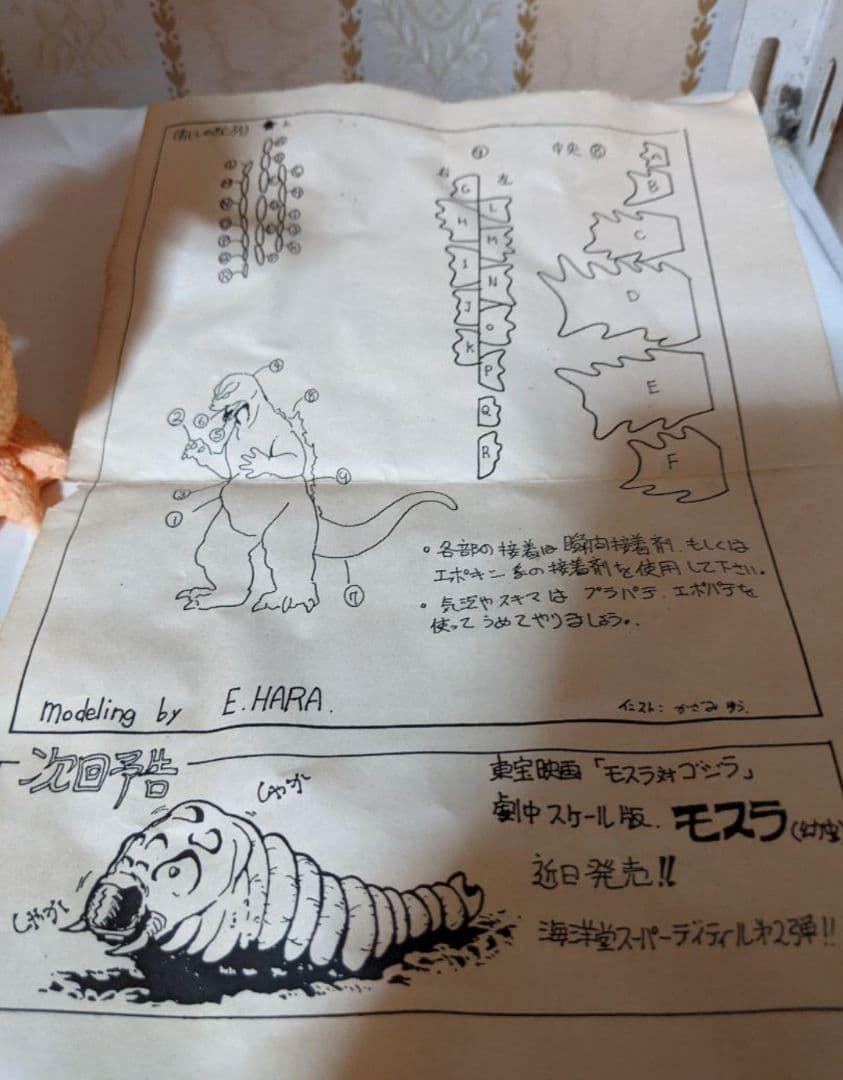 右
左
中央
G
H
I
J
K
L
M
N
O
P
Q
R
A
B
C
D
E
F
④
②
⑥
⑤
⑧
⑨
③
①
⑦
。各部の接着は瞬間接着剤、もしくは
エポキシ系の接着剤を使用して下さい。
。気泡やスキマは プラパテ、エポパテを
使って うめてやりましょう。
modeling by E.HARA.
インスト:
次回予告
東宝映画「モスラ対ゴジラ」
劇中スケール版、モスラ(幼虫
近日発売!!
海洋堂スーパーディティール第2弾!!